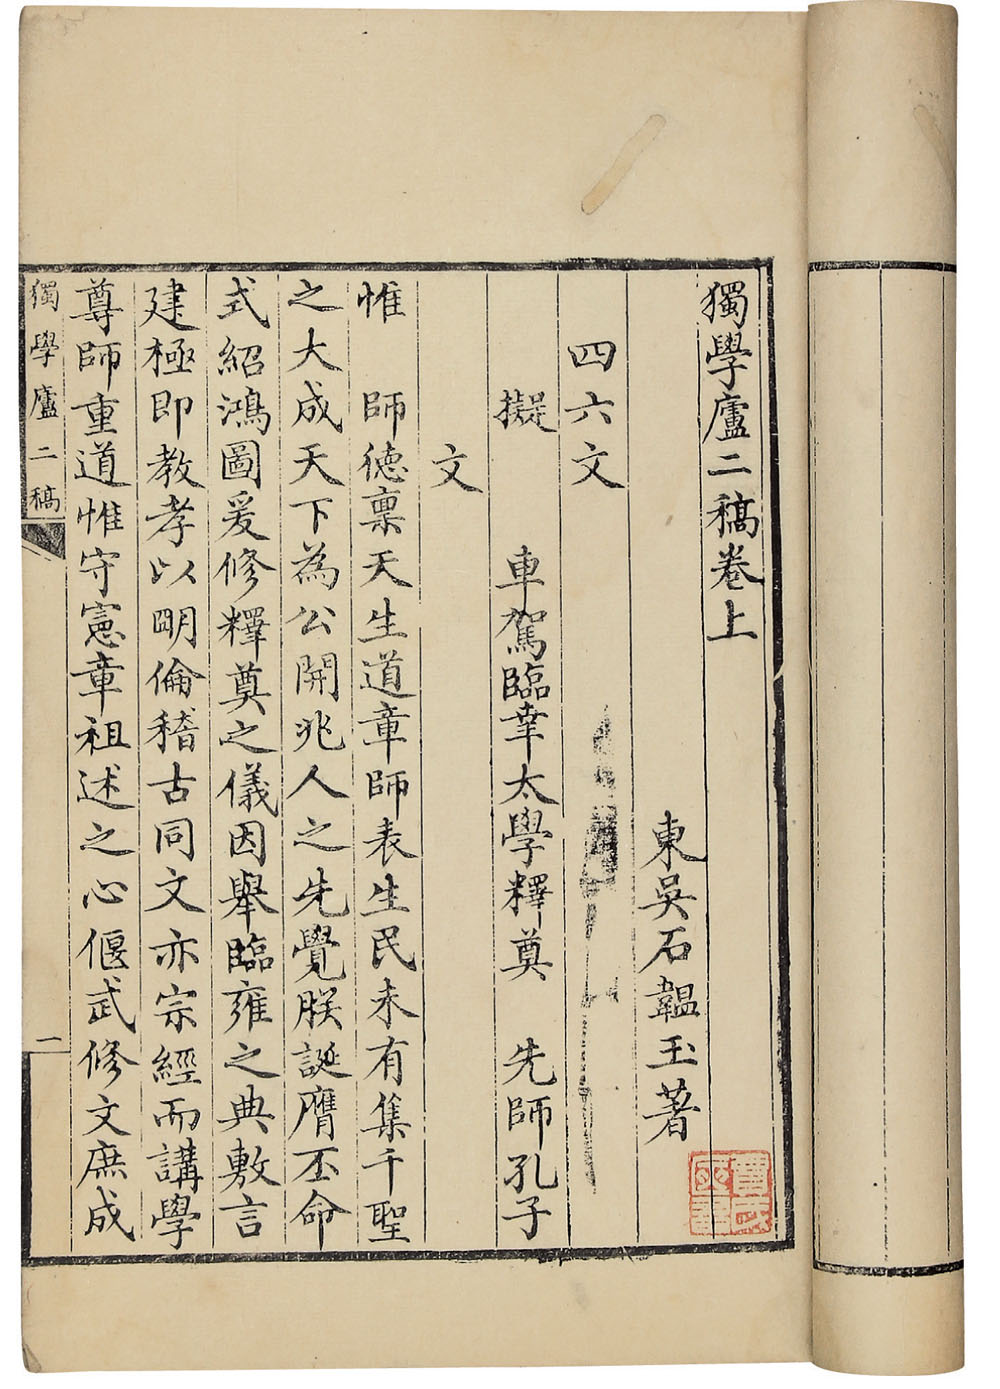 獨學廬二稿卷上
東吳石韞玉著
四六文
擬　車駕臨幸太學釋奠　先師孔子
文
惟　師德稟天生道章師表生民未有集千聖
之大成天下為公開兆人之先覺朕誕膺丕命
式紹鴻圖爰修釋奠之儀因舉臨雍之典敷言
建極即教孝以明倫稽古同文亦宗經而講學
尊師重道惟守憲章祖述之心偃武修文庶成
獨學廬二稿
一